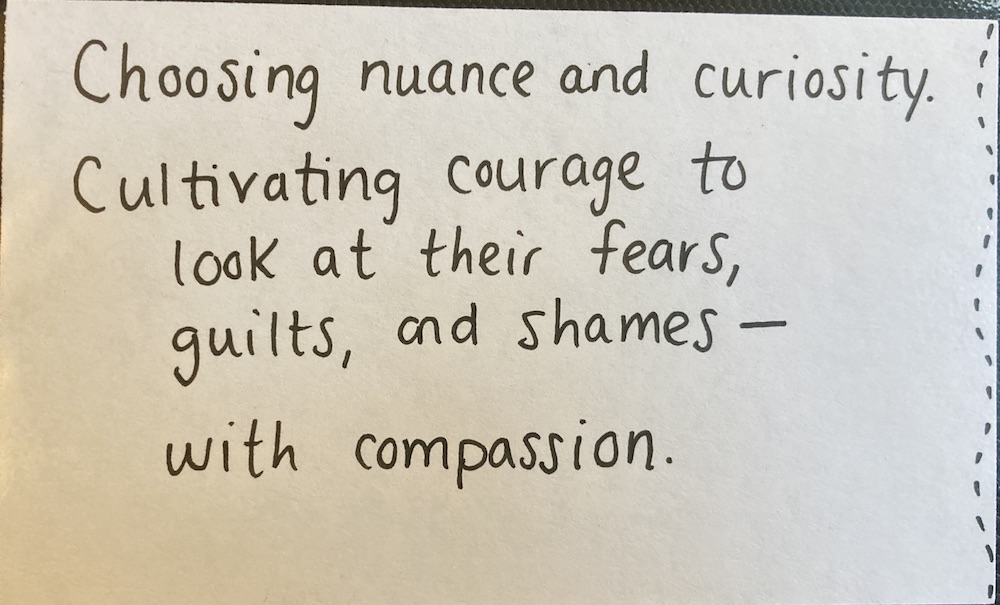 Choosing nuance and curiosity.
Cultivating courage to
look at their fears,
guilts, and shames —
with compassion.